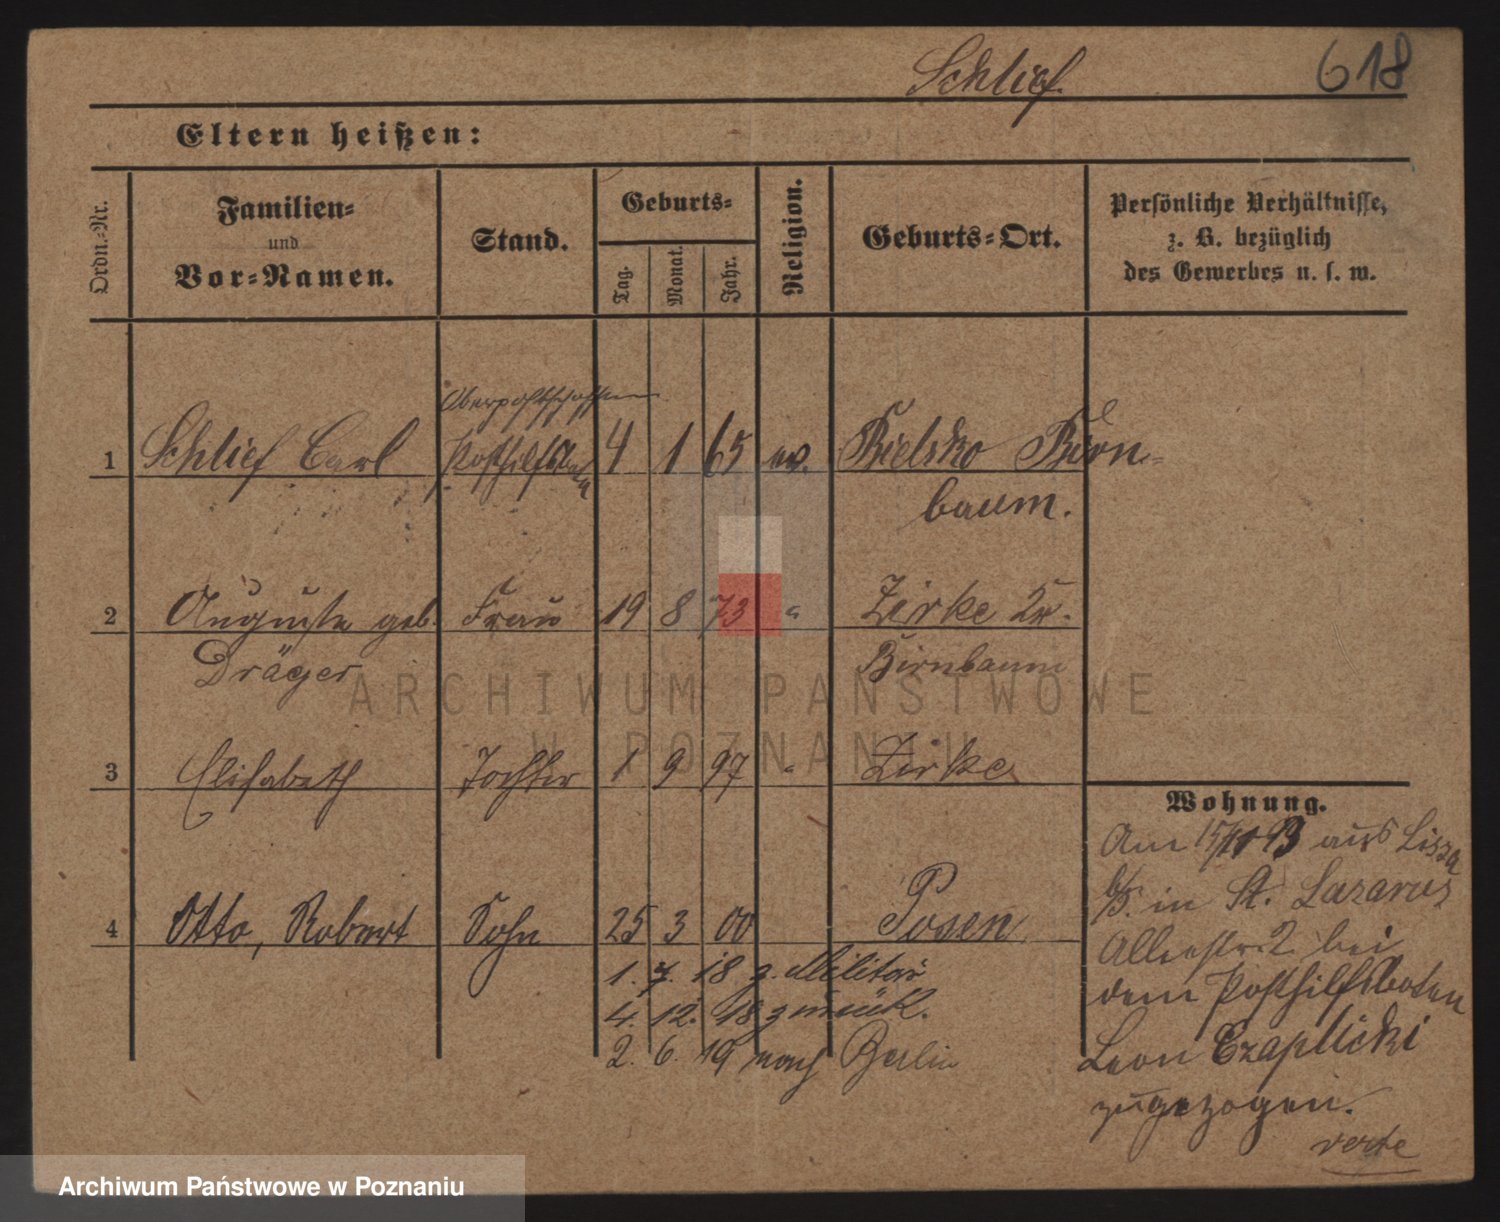 Schlief. 618
Eltern heißen:
Ordn.-Nr.
Familien-
und
Vor-Namen.
Stand.
Geburts-
Tag.
Monat.
Jahr.
Religion.
Geburts-Ort.
Persönliche Verhältnisse,
z. B. bezüglich
des Gewerbes u. s. w.
Oberpostschaffner
1 Schlief Carl Posthilfsbote 4 1 65 ev. Bielsko Birn-
baum.
2 Auguste geb. Frau 19 8 73 " Zirke Kr.
Dräger Birnbaum
3 Elisabeth Tochter 1 9 97 " Zirke
4 Otto, Robert Sohn 25 3 00 Posen
1. 7. 18 z. Militär
4. 12. 18 zurück.
2. 6. 19 nach Berlin
Wohnung.
Am 15/11 93 aus Lissa
b/P. in St. Lazarus
Alleestr. 2 bei
dem Posthilfsboten
Leon Czaplicki
zugezogen.
verte
ARCHIWUM PAŃSTWOWE
W POZNANIU
Archiwum Państwowe w Poznaniu